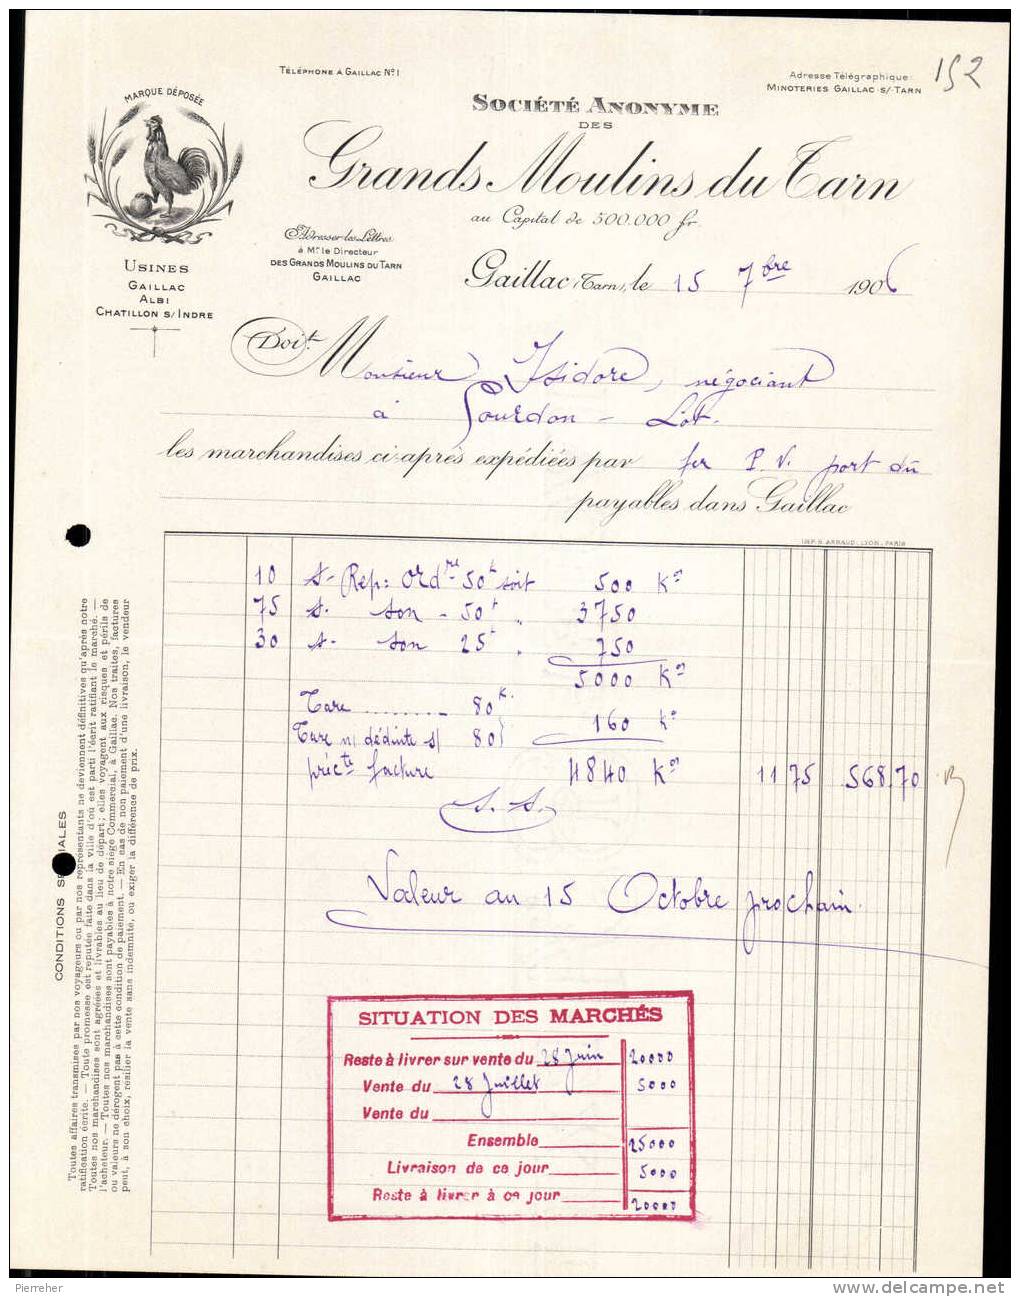 152
TÉLÉPHONE À GAILLAC Nº 1
Adresse Télégraphique:
MINOTERIES GAILLAC S/-TARN
MARQUE DÉPOSÉE
SOCIÉTÉ ANONYME
DES
Grands Moulins du Tarn
au Capital de 500.000 fr.
Adresser les Lettres
à Mr le Directeur
DES GRANDS MOULINS DU TARN
GAILLAC
USINES
GAILLAC
ALBI
CHATILLON S/INDRE
Gaillac (Tarn), le 15 7bre 1906
Doit Monsieur Isidore, négociant
à Gourdon - Lot.
les marchandises ci-après expédiées par fer P. V. port dû
payables dans Gaillac
IMP. B. ARNAUD, LYON-PARIS
10 s- Rep: Ordre 50k soit 500 Kos
75 s. son - 50k " 3750
30 s- son 25k " 750
5000 Kos
Tare ........ 80k.
Tare n/ déduite s/ 80 160 Ko
précte facture 4840 Kos 11 75 568.70
S. S.
Valeur au 15 Octobre prochain.
SITUATION DES MARCHÉS
Reste à livrer sur vente du 28 Juin 20000
Vente du 28 Juillet 5000
Vente du
Ensemble 25000
Livraison de ce jour 5000
Reste à livrer à ce jour 20000
CONDITIONS SPÉCIALES
Toutes affaires transmises par nos voyageurs ou par nos représentants ne deviennent définitives qu'après notre
ratification écrite. — Toute promesse est réputée faite dans la ville d'où est parti l'écrit ratifiant le marché. —
Toutes nos marchandises sont agréées et livrables au lieu de départ; elles voyagent aux risques et périls de
l'acheteur. — Toutes nos marchandises sont payables à notre siège Commercial, à Gaillac. Nos traites, factures
ou valeurs ne dérogent pas à cette condition de paiement. — En cas de non paiement d'une livraison, le vendeur
peut, à son choix, résilier la vente sans indemnité, ou exiger la différence de prix.
Pierreher
www.delcampe.net